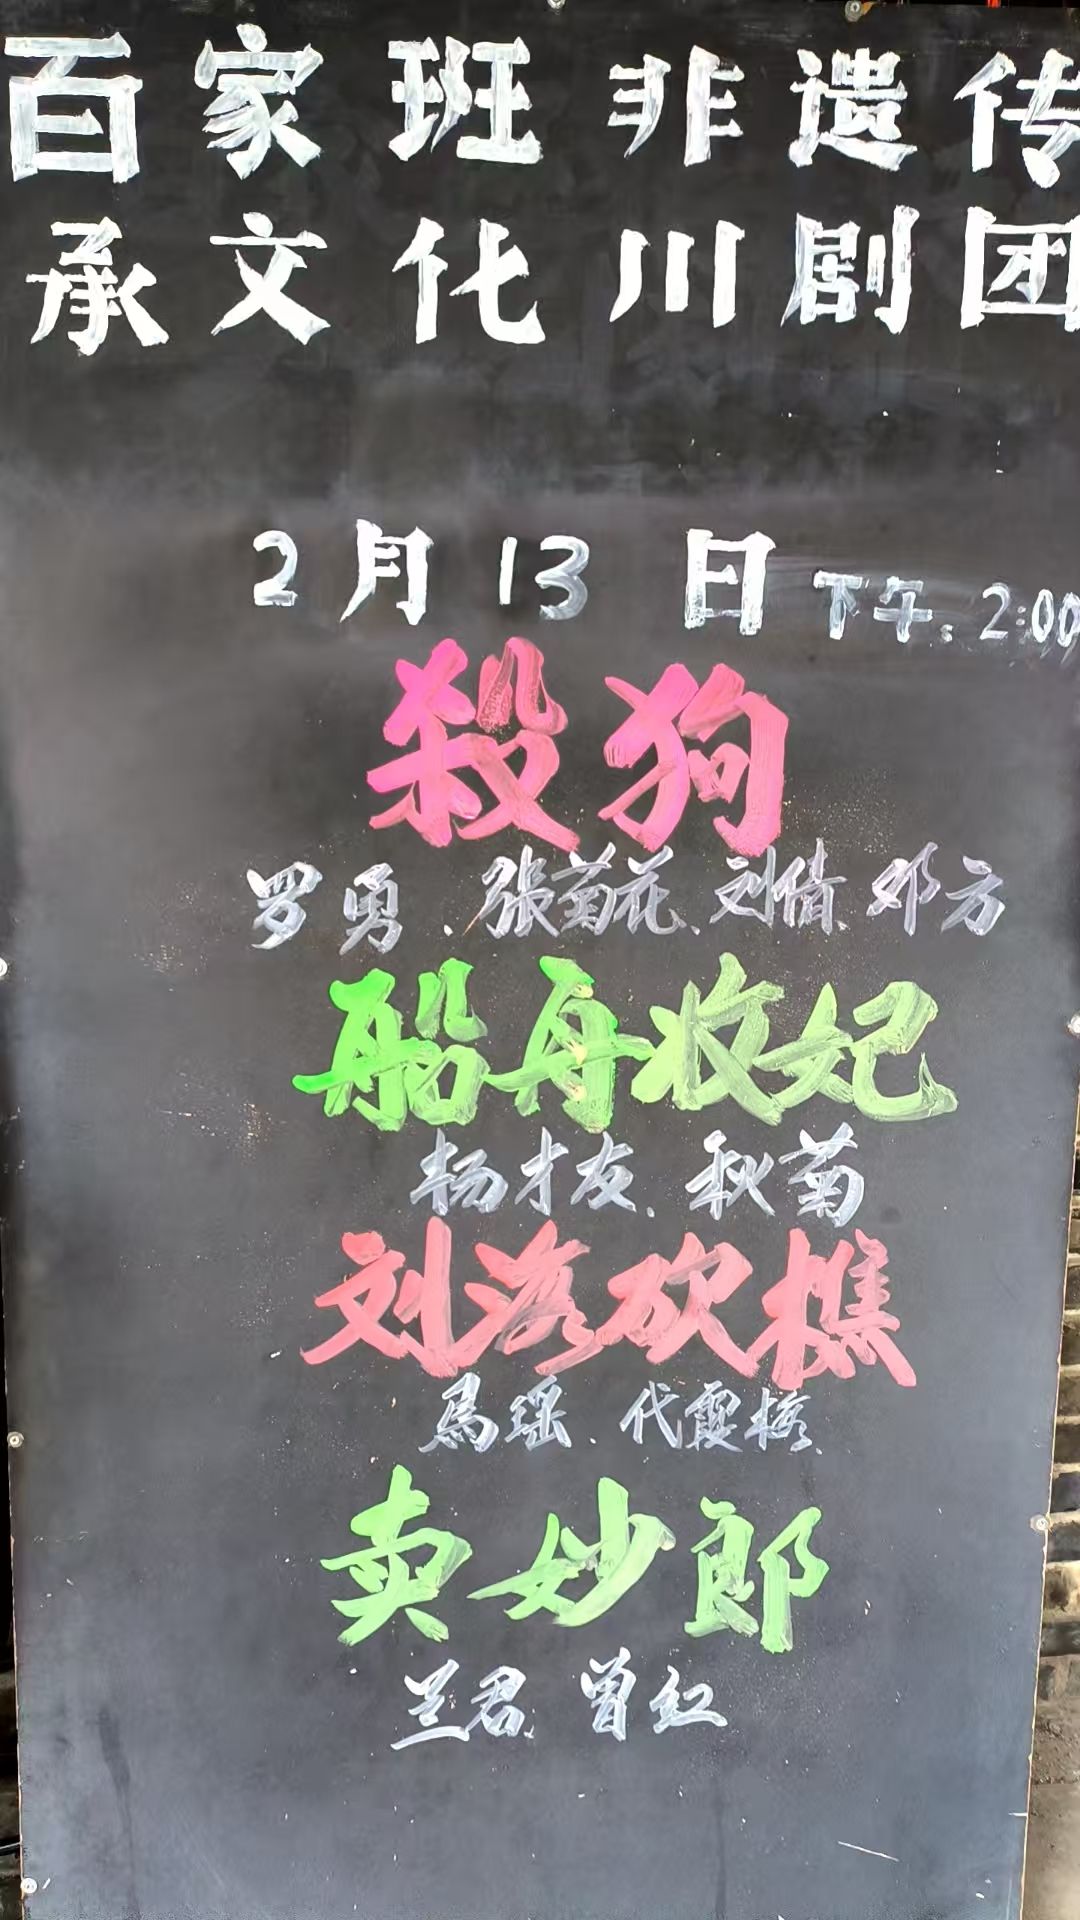 百家班非遗传
承文化川剧团
2月13日下午:2:00
殺狗
罗勇、張菊花、刘倩、邓方
船舟收妃
杨才友、秋菊
刘海砍樵
馬瑶、代霞
卖妙郎
兰君、曾红